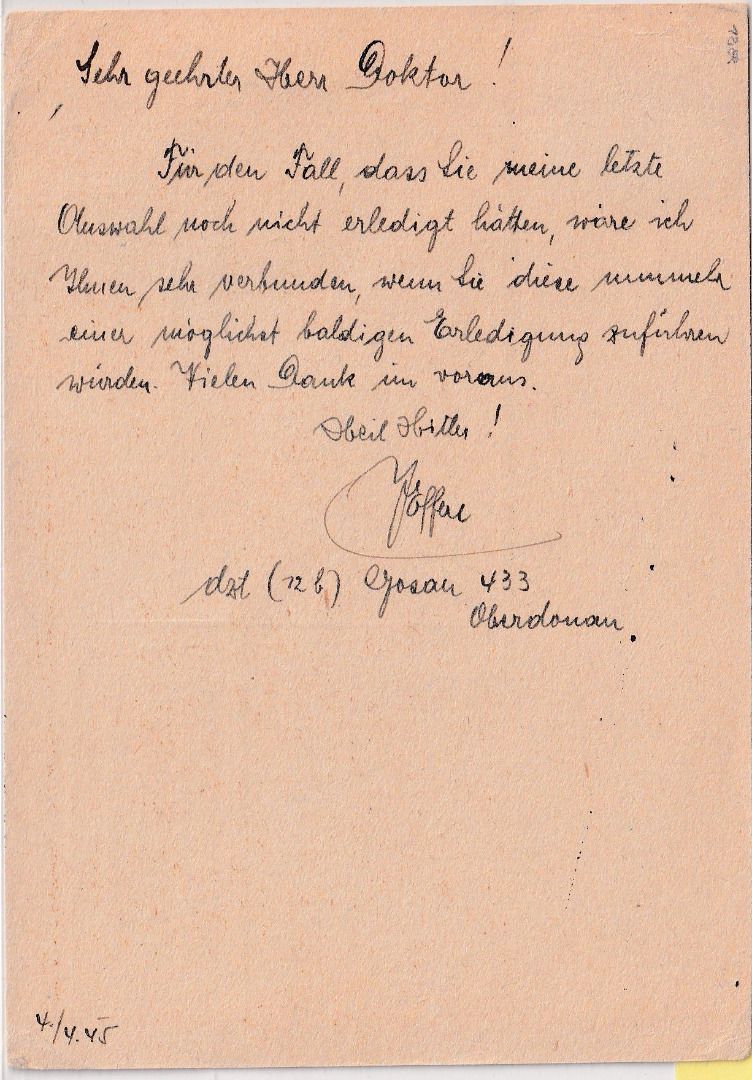 Sehr geehrter Herr Doktor!
Für den Fall, dass Sie meine letzte
Auswahl noch nicht erledigt hätten, wäre ich
Ihnen sehr verbunden, wenn Sie diese nunmehr
einer möglichst baldigen Erledigung zuführen
würden. Vielen Dank im voraus.
Heil Hitler!
dzt (12 b) Gosau 433
Oberdonau
4./4.45